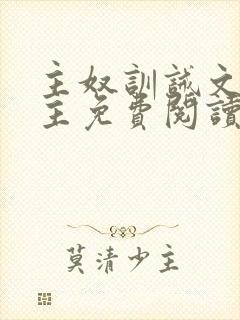 主奴訓誡文
主免費閱讀
莫清少主